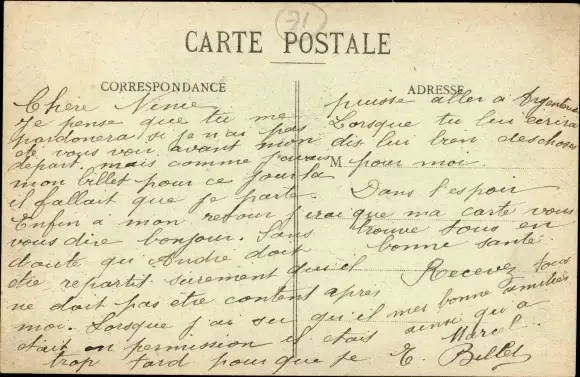 71
CARTE POSTALE
CORRESPONDANCE
Chère Ninie
Je pense que tu me
pardonnera si je n'ai pas
été vous voir avant mon
départ, mais comme j'avais
mon billet pour ce jour la
il fallait que je parte.
Enfin a mon retour j'irai
vous dire bonjour. Sans
doute qu'André doit
etre repartit surement qu'il
ne doit pas etre content apres
moi. Lorsque j'ai su qu'il
etait en permission il etais
trop tard pour que je
ADRESSE
puisse aller a Argenteuil
Lorsque tu lui ecriras
dis lui bien des choses
M pour moi.
Dans l'espoir
que ma carte vous
trouve tous en
bonne santé.
Recevez tous
mes bonne amitiés
ainsi qu'a
Marcel.
E. Billet